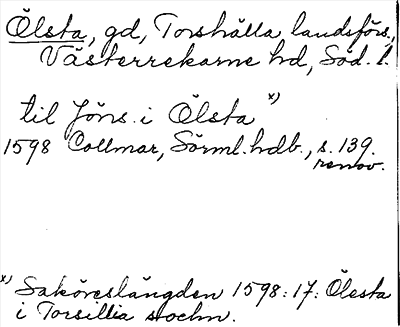 Ölsta, gd, Torshälla landsförs.,
Västerrekarne hd, Söd. l.
til Jöns i Ölsta x)
1598 Collmar, Sörml. hdb., s. 139.
renov.
x) Saköreslängden 1598: 17: Ölesta
i Torsillia sochn.